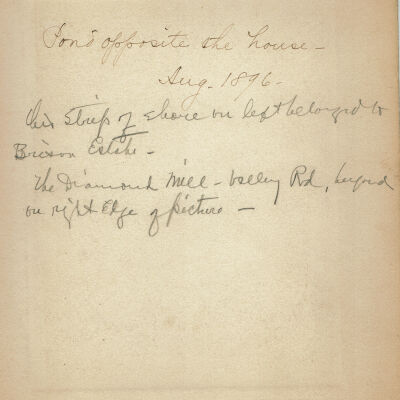 Pond opposite the house -
Aug. 1896 -
this strip of shore on left belonged to
Estate -
The Diamond Mill - Valley Rd, beyond
on right edge of picture -